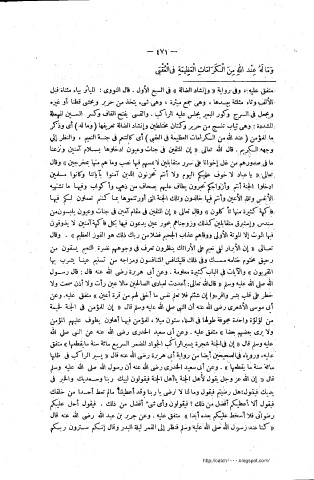 — ٤٧١ —
وَمَا لَهُ عِنْدَ اللهِ مِنَ الْكَرَامَاتِ الْعَظِيمَةِ فِي الْعُقْبَى
متفق عليه» وفي رواية « وإنشاد الضالة » في السبع الأول . قال النووى : المياثر بياء مثناة قبل
الألف وثاء مثلثة بعدها ، وهى جمع ميثرة ، وهى شىء يتخذ من حرير ويحشى قطنا أو غيره
ويجعل فى السرج وكور البعير يجلس عليه الراكب . والقسى بفتح القاف وكسر السين المهملة
المشددة : وهى ثياب تنسج من حرير وكتان مختلطين وإنشاد الضالة تعريفها ( وما له ) أى وذكر
ما للمؤمن ( عند الله من الكرامات العظيمة فى العقبى ) أى كالتنعم فى جنة النعيم ، والنظر إلى
وجهه الكريم . قال الله تعالى « إن المتقين فى جنات وعيون ادخلوها بسلام آمنين ونزعنا
ما فى صدورهم من غل إخوانا على سرر متقابلين لا يمسهم فيها نصب وما هم منها بمخرجين » وقال
تعالى « يا عباد لا خوف عليكم اليوم ولا أنتم تحزنون الذين آمنوا بآياتنا وكانوا مسلمين
ادخلوا الجنة أنتم وأزواجكم تحبرون يطاف عليهم بصحاف من ذهب وأكواب وفيها ما تشتهيه
الأنفس وتلذ الأعين وأنتم فيها خالدون وتلك الجنة التى أورثتموها بما كنتم تعملون لكم فيها
فاكهة كثيرة منها تأكلون » وقال تعالى « إن المتقين فى مقام أمين فى جنات وعيون يلبسون من
سندس وإستبرق متقابلين كذلك وزوجناهم بحور عين يدعون فيها بكل فاكهة آمنين لا يذوقون
فيها الموت إلا الموتة الأولى ووقاهم عذاب الجحيم فضلا من ربك ذلك هو الفوز العظيم » وقال
تعالى « إن الأبرار لفى نعيم على الأرائك ينظرون تعرف فى وجوههم نضرة النعيم يسقون من
رحيق مختوم ختامه مسك وفى ذلك فليتنافس المتنافسون ومزاجه من تسنيم عينا يشرب بها
المقربون » والآيات فى الباب كثيرة معلومة . وعن أبى هريرة رضى الله عنه قال : قال رسول
الله صلى الله عليه وسلم « قال الله تعالى أعددت لعبادى الصالحين مالا عين رأت ولا أذن سمعت ولا
خطر على قلب بشر واقرءوا إن شئتم فلا تعلم نفس ما أخفى لهم من قرة أعين » متفق عليه . وعن
أبى موسى الأشعرى رضى الله عنه أن النبى صلى الله عليه وسلم قال « إن للمؤمن فى الجنة لخيمة
من لؤلؤة واحدة مجوفة طولها فى السماء ستون ميلا ، للمؤمن فيها أهلون يطوف عليهم المؤمن
ولا يرى بعضهم بعضا » متفق عليه . وعن أبى سعيد الخدرى رضى الله عنه عن النبى صلى الله عليه
وسلم قال « إن فى الجنة شجرة يسير الراكب الجواد المضمر السريع مائة سنة ما يقطعها » متفق
عليه ، وروياه فى الصحيحين أيضا من رواية أبى هريرة رضى الله عنه قال « يسير الراكب فى ظلها
مائة سنة ما يقطعها » وعن أبى سعيد الخدرى رضى الله عنه أن رسول الله صلى الله عليه وسلم
قال « إن الله عز وجل يقول لأهل الجنة يا أهل الجنة فيقولون لبيك ربنا وسعديك والخير فى
يديك فيقول هل رضيتم فيقولون وما لنا لا نرضى يا ربنا وقد أعطيتنا مالم تعط أحدا من خلقك
فيقول ألا أعطيكم أفضل من ذلك ؟ فيقولون وأى شىء أفضل من ذلك . فيقول أحل عليكم
رضوانى فلا أسخط عليكم بعده أبدا » متفق عليه . وعن جرير بن عبد الله رضى الله عنه قال
« كنا عند رسول الله صلى الله عليه وسلم فنظر إلى القمر ليلة البدر وقال إنكم سترون ربكم